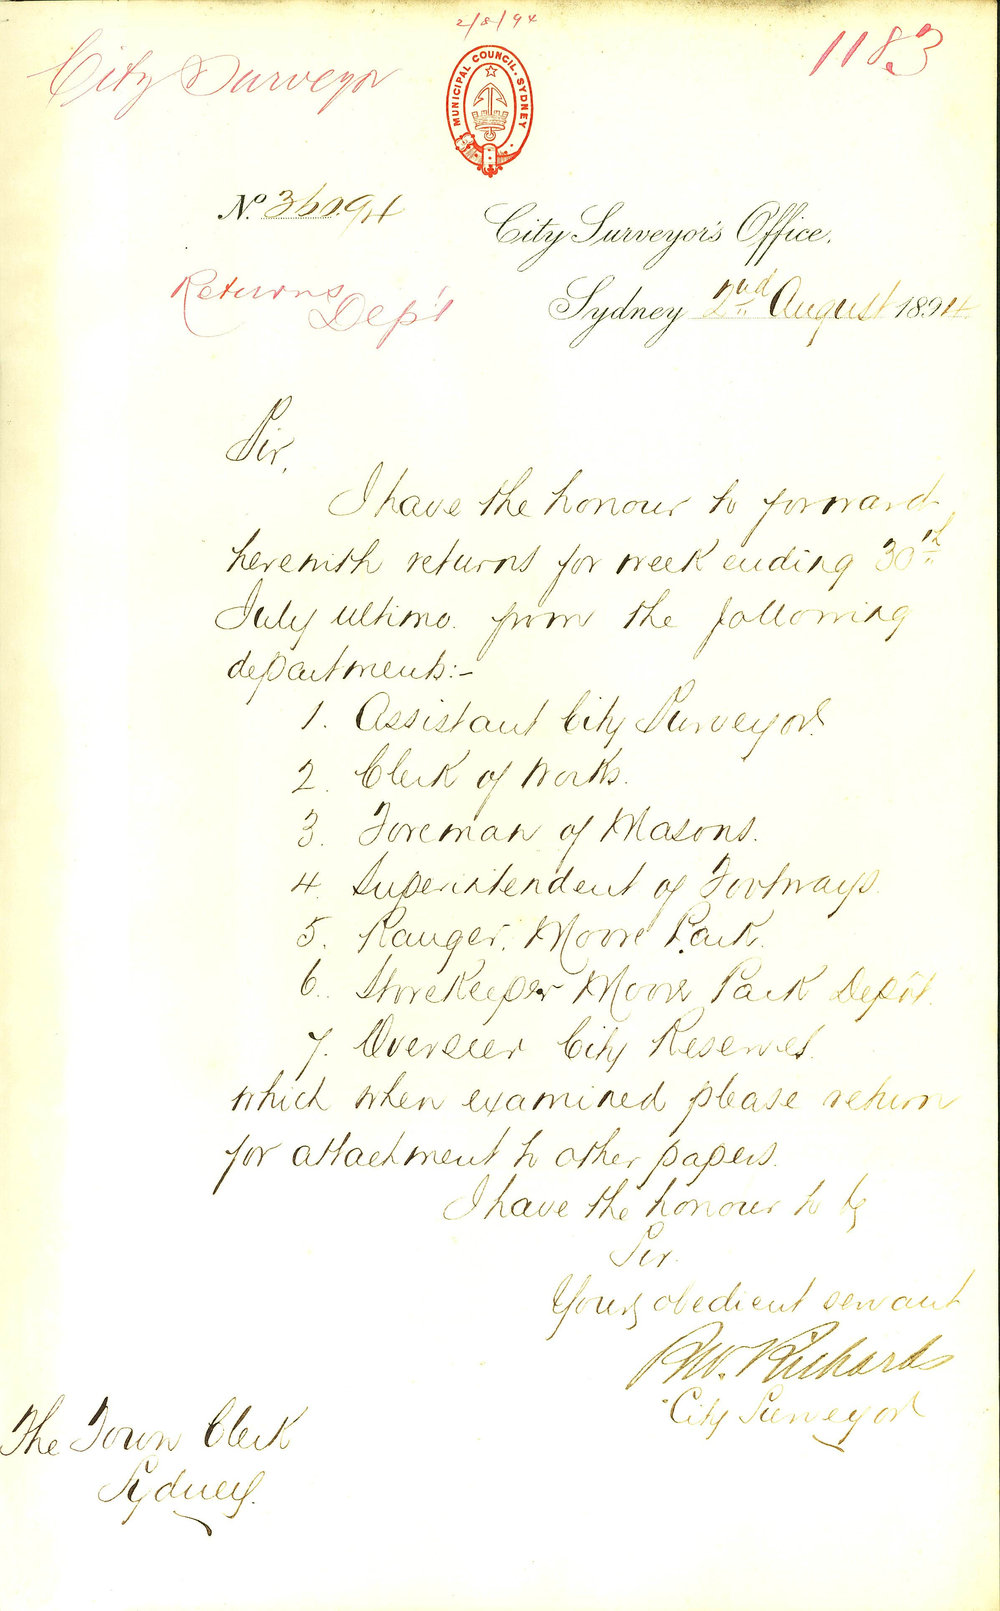 2/8/94
1183
City Surveyor
MUNICIPAL COUNCIL. SYDNEY
No. 360.94
City Surveyor's Office.
Returns
Dep't
Sydney 2nd August 1894
Sir,
I have the honour to forward
herewith returns for week ending 30th
July ultimo. from the following
departments:-
1. Assistant City Surveyor
2. Clerk of Works.
3. Foreman of Masons.
4. Superintendent of Footways.
5. Ranger, Moore Park.
6. Storekeeper Moore Park Depôt.
7. Overseer City Reserves.
which when examined please return
for attachment to other papers.
I have the honour to be
Sir.
Your obedient servant
RW. Richards
City Surveyor
The Town Clerk
Sydney.